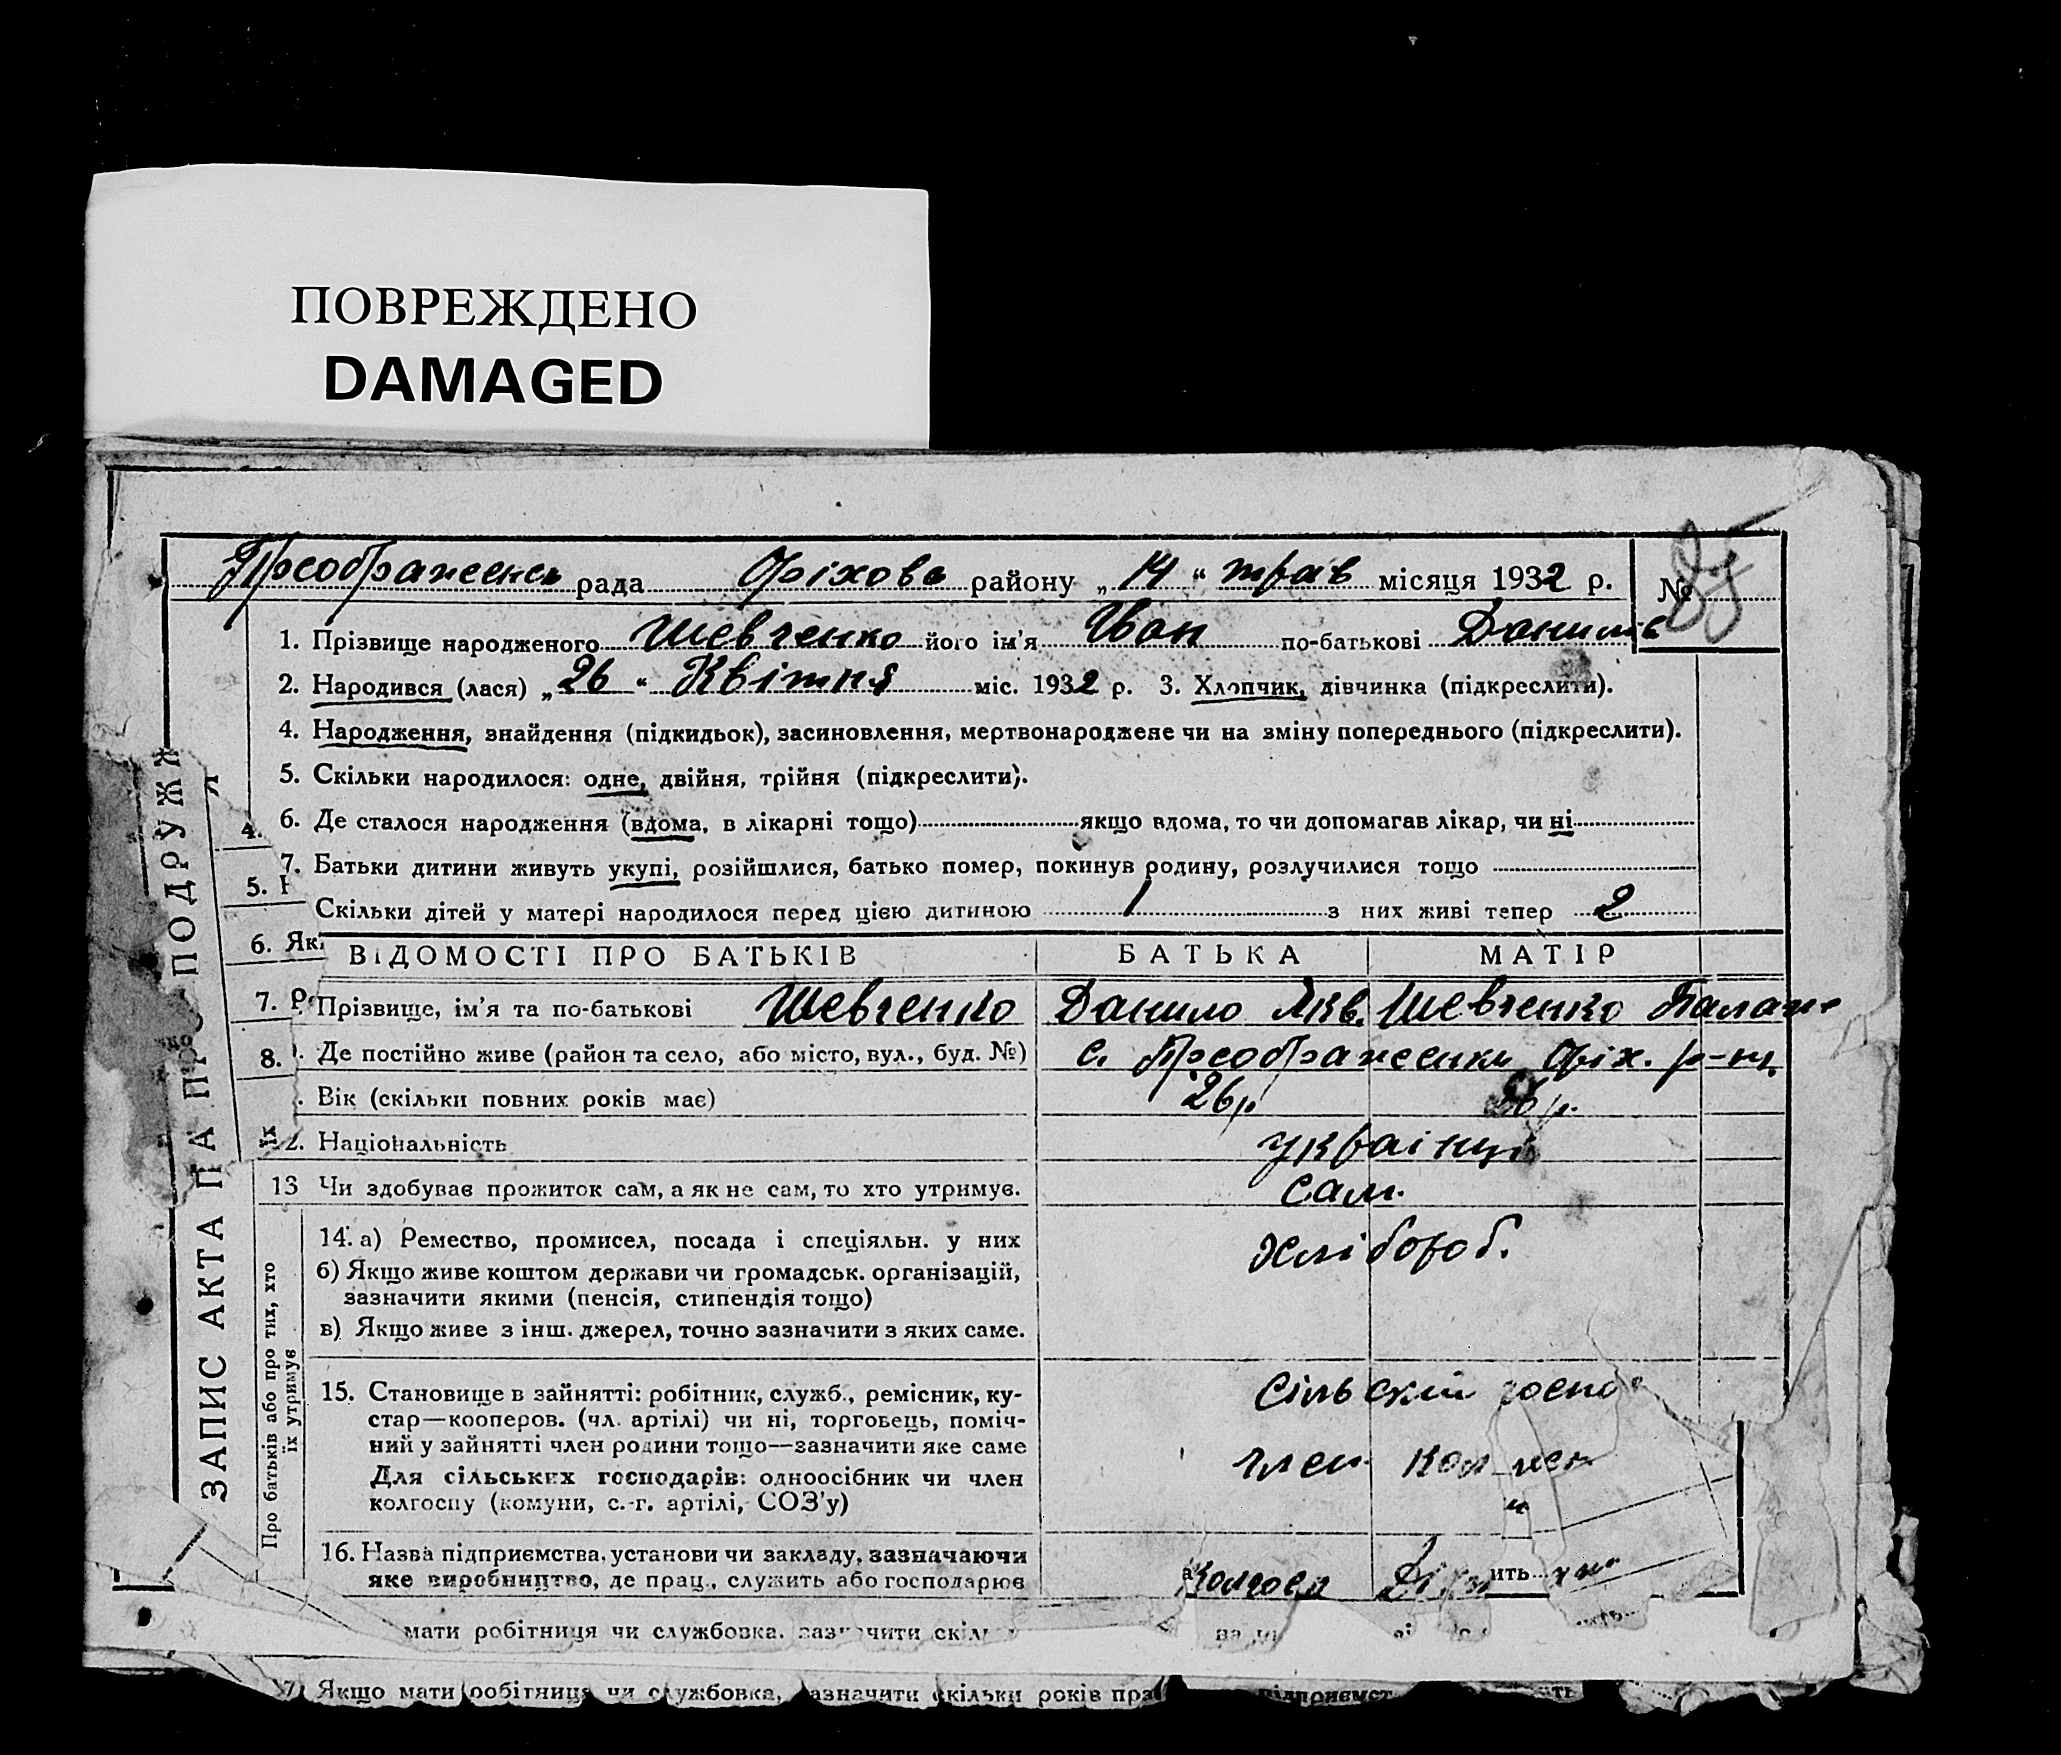 ПОВРЕЖДЕНО
DAMAGED
Преображенсь рада Оріхово району „ 14 “ трав місяця 1932 р. №
1. Прізвище народженого Шевченко його ім’я Іван по-батькові Данилів
2. Народився (лася) „ 26 “ Квітня міс. 1932 р. 3. Хлопчик, дівчинка (підкреслити).
4. Народження, знайдення (підкидьок), засиновлення, мертвонароджене чи на зміну попереднього (підкреслити).
5. Скільки народилося: одне, двійня, трійня (підкреслити).
4. 6. Де сталося народження (вдома, в лікарні тощо) якщо вдома, то чи допомагав лікар, чи ні
7. Батьки дитини живуть укупі, розійшлися, батько помер, покинув родину, розлучилися тощо
5. Скільки дітей у матері народилося перед цією дитиною 1 з них живі тепер 2
6. ВІДОМОСТІ ПРО БАТЬКІВ БАТЬКА МАТІР
7. Прізвище, ім’я та по-батькові Шевченко Данило Якв. Шевченко Палаж
8. Де постійно живе (район та село, або місто, вул., буд. №) с. Преображенки Оріх. р-ну
Вік (скільки повних років має) 26 р 26 р.
2. Національність українці
13 Чи здобуває прожиток сам, а як не сам, то хто утримує. сам.
14. а) Ремество, промисел, посада і спеціяльн. у них хлібороб.
б) Якщо живе коштом держави чи громадськ. організацій,
зазначити якими (пенсія, стипендія тощо)
в) Якщо живе з інш. джерел, точно зазначити з яких саме.
15. Становище в зайнятті: робітник, служб., ремісник, ку-
стар—кооперов. (чл. артілі) чи ні, торговець, поміч-
ний у зайнятті член родини тощо—зазначити яке саме
Для сільських господарів: одноосібник чи член
колгоспу (комуни, с.-г. артілі, СОЗ’у)
сільський
член
16. Назва підприємства, установи чи закладу, зазначаючи
яке виробництво, де прац., служить або господарює Колгосп ить
мати робітниця чи службовка. зазначити скіль
7 Якщо мати робітниця чи службовка, зазначити скільки років пра підприємст
ЗАПИС АКТА ПРО ПОДРУЖ
Про батьків або про тих, хто
їх утримує